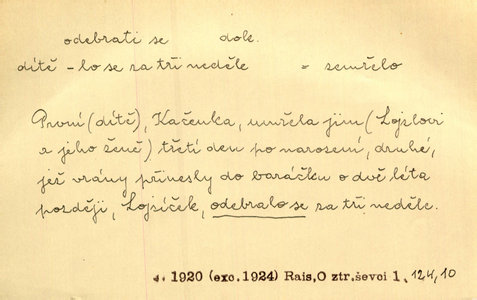 odebrati se dole.
dítě -lo se za tři neděle = zemřelo
První (dítě), Kačenka, umřela jim (Lojzlovi
a jeho ženě) třetí den po narození, druhé,
jež vrány přinesly do baráčku o dvě léta
později, Lojzíček, odebralo se za tři neděle.
1920 (exc. 1924) Rais, O ztr. ševci 1, 124, 10